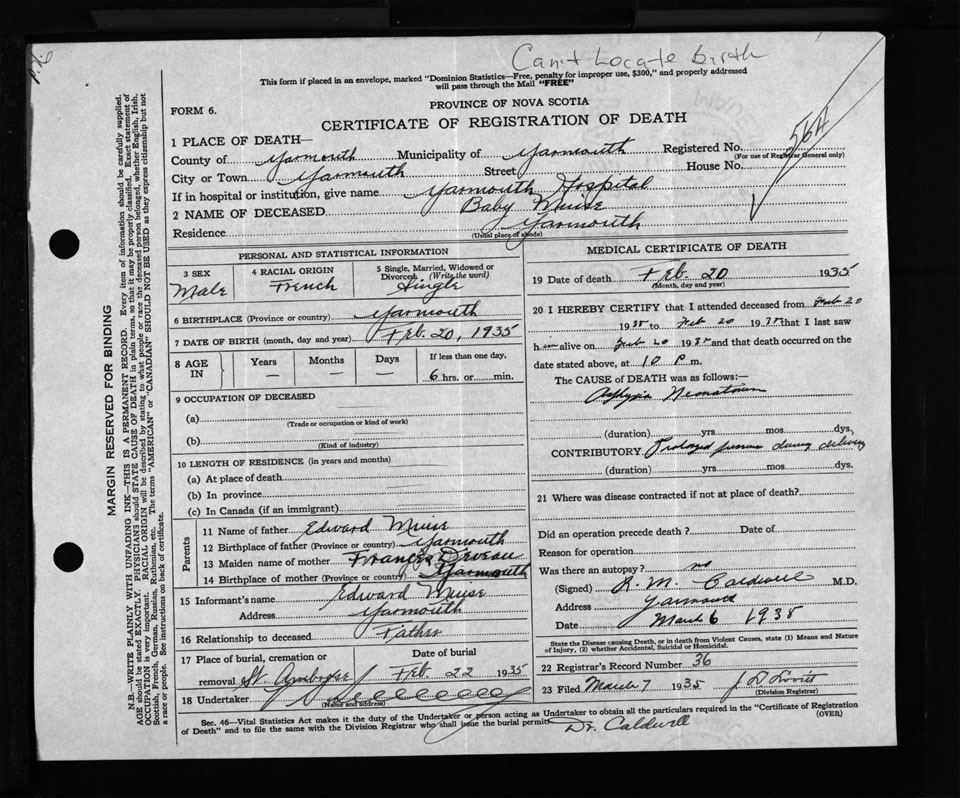 Can't Locate Birth
This form if placed in an envelope, marked "Dominion Statistics—Free, penalty for improper use, $300," and properly addressed
will pass through the Mail "FREE"
FORM 6.
PROVINCE OF NOVA SCOTIA
CERTIFICATE OF REGISTRATION OF DEATH
564
MARGIN RESERVED FOR BINDING
N.B.—WRITE PLAINLY WITH UNFADING INK—THIS IS A PERMANENT RECORD. Every item of information should be carefully supplied.
AGE should be stated EXACTLY. PHYSICIANS should STATE CAUSE OF DEATH in plain terms, so that it may be properly classified. Exact statement of
OCCUPATION is very important. RACIAL ORIGIN will be described by stating to what people or race the deceased person belonged, whether English, Irish,
Scottish, French, German, Russian, Ruthenian, etc. The terms "AMERICAN" or "CANADIAN" SHOULD NOT BE USED as they express citizenship but not
a race or people. See instructions on back of certificate.
1 PLACE OF DEATH—
County of Yarmouth Municipality of Yarmouth Registered No.
(For use of Registrar General only)
City or Town Yarmouth Street House No.
If in hospital or institution, give name Yarmouth Hospital
2 NAME OF DECEASED Baby Muise
Residence Yarmouth
(Usual place of abode)
PERSONAL AND STATISTICAL INFORMATION
3 SEX
Male
4 RACIAL ORIGIN
French
5 Single, Married, Widowed or
Divorced (Write the word)
Single
6 BIRTHPLACE (Province or country) Yarmouth
7 DATE OF BIRTH (month, day and year) Feb. 20, 1935
8 AGE IN
Years
—
Months
—
Days
—
If less than one day,
6 hrs. or min.
9 OCCUPATION OF DECEASED
(a)
(Trade or occupation or kind of work)
(b)
(Kind of industry)
10 LENGTH OF RESIDENCE (in years and months)
(a) At place of death
(b) In province
(c) In Canada (if an immigrant)
Parents
11 Name of father Edward Muise
12 Birthplace of father (Province or country) Yarmouth
13 Maiden name of mother Frances Deveau
14 Birthplace of mother (Province or country) Yarmouth
15 Informant's name Edward Muise
Address Yarmouth
16 Relationship to deceased Father
17 Place of burial, cremation or
removal St. Ambrose
Date of burial
Feb 22 1935
18 Undertaker
(Name and address)
MEDICAL CERTIFICATE OF DEATH
19 Date of death Feb. 20 1935
(Month, day and year)
20 I HEREBY CERTIFY that I attended deceased from Feb 20
1935 to Feb 20 1935 that I last saw
him alive on Feb 20 1935 and that death occurred on the
date stated above, at 10 p.m.
The CAUSE OF DEATH was as follows:—
Asphyxia Neonatorum
(duration) yrs. mos. dys.
CONTRIBUTORY. Prolonged pressure during delivery
(duration) yrs. mos. dys.
21 Where was disease contracted if not at place of death?
Did an operation precede death? Date of
Reason for operation
Was there an autopsy? no
(Signed) R. M. Caldwell M.D.
Address Yarmouth
Date March 6 1935
State the Disease causing Death, or in death from Violent Causes, state (1) Means and Nature
of Injury, (2) whether Accidental, Suicidal or Homicidal.
22 Registrar's Record Number 36
23 Filed March 7 1935
(Division Registrar)
Sec. 46—Vital Statistics Act makes it the duty of the Undertaker or person acting as Undertaker to obtain all the particulars required in the "Certificate of Registration
of Death" and to file the same with the Division Registrar who shall issue the burial permit. (OVER)
Dr. Caldwell